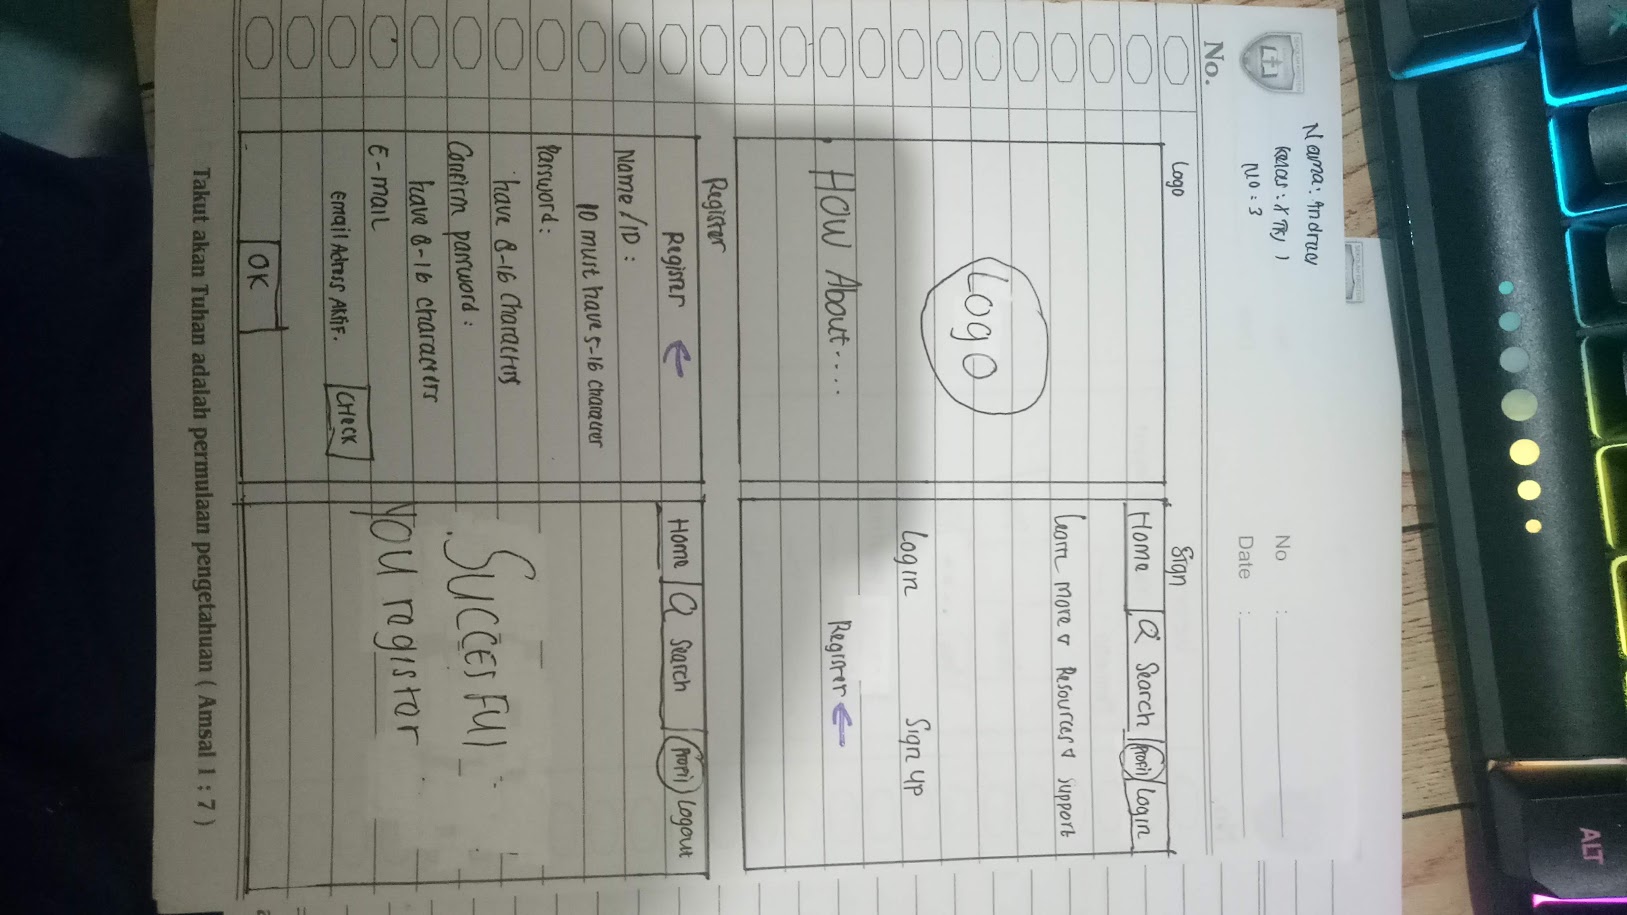 Nama: Andrew
No : 3
No :
Date :
No.
Logo
Logo
How About....
Sign
Home Q Search Profil Login
Learn more Resources support
Login Sign up
Register
Register
Register
Name/ID :
ID must have 5-16 character
Password :
have 8-16 characters
Confirm password :
have 8-16 characters
E-mail
email Adress Aktif.
CHeck
OK
Home Q Search Profil Logout
SUCCESFUl
YOU registor
Takut akan Tuhan adalah permulaan pengetahuan ( Amsal 1 : 7 )
ALT